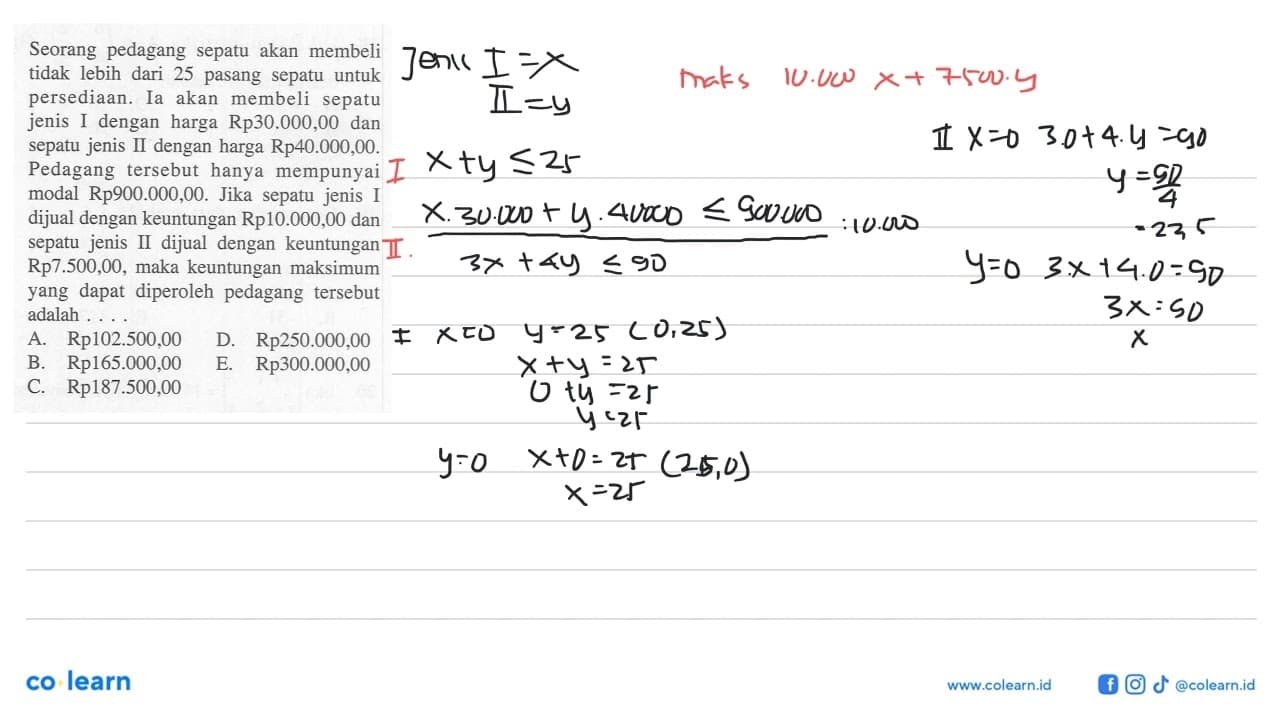 Seorang pedagang sepatu akan membeli
tidak lebih dari 25 pasang sepatu untuk
persediaan. Ia akan membeli sepatu
jenis I dengan harga Rp30.000,00 dan
sepatu jenis II dengan harga Rp40.000,00.
Pedagang tersebut hanya mempunyai
modal Rp900.000,00. Jika sepatu jenis I
dijual dengan keuntungan Rp10.000,00 dan
sepatu jenis II dijual dengan keuntungan
Rp7.500,00, maka keuntungan maksimum
yang dapat diperoleh pedagang tersebut
adalah . . . .
A. Rp102.500,00 D. Rp250.000,00
B. Rp165.000,00 E. Rp300.000,00
C. Rp187.500,00
Jenis I = x
II = y
maks 10.000 x + 7500.y
I x + y ≤ 25
x. 30.000 + y. 40000 ≤ 900.000 :10.000
II. 3x + 4y ≤ 90
I x=0 y = 25 (0,25)
x + y = 25
0 + y = 25
y = 25
y=0 x+0 = 25 (25,0)
x = 25
II x=0 3.0+4.y =90
y = 90/4
= 22,5
y=0 3.x+4.0=90
3x=90
x
co learn
www.colearn.id
@colearn.id